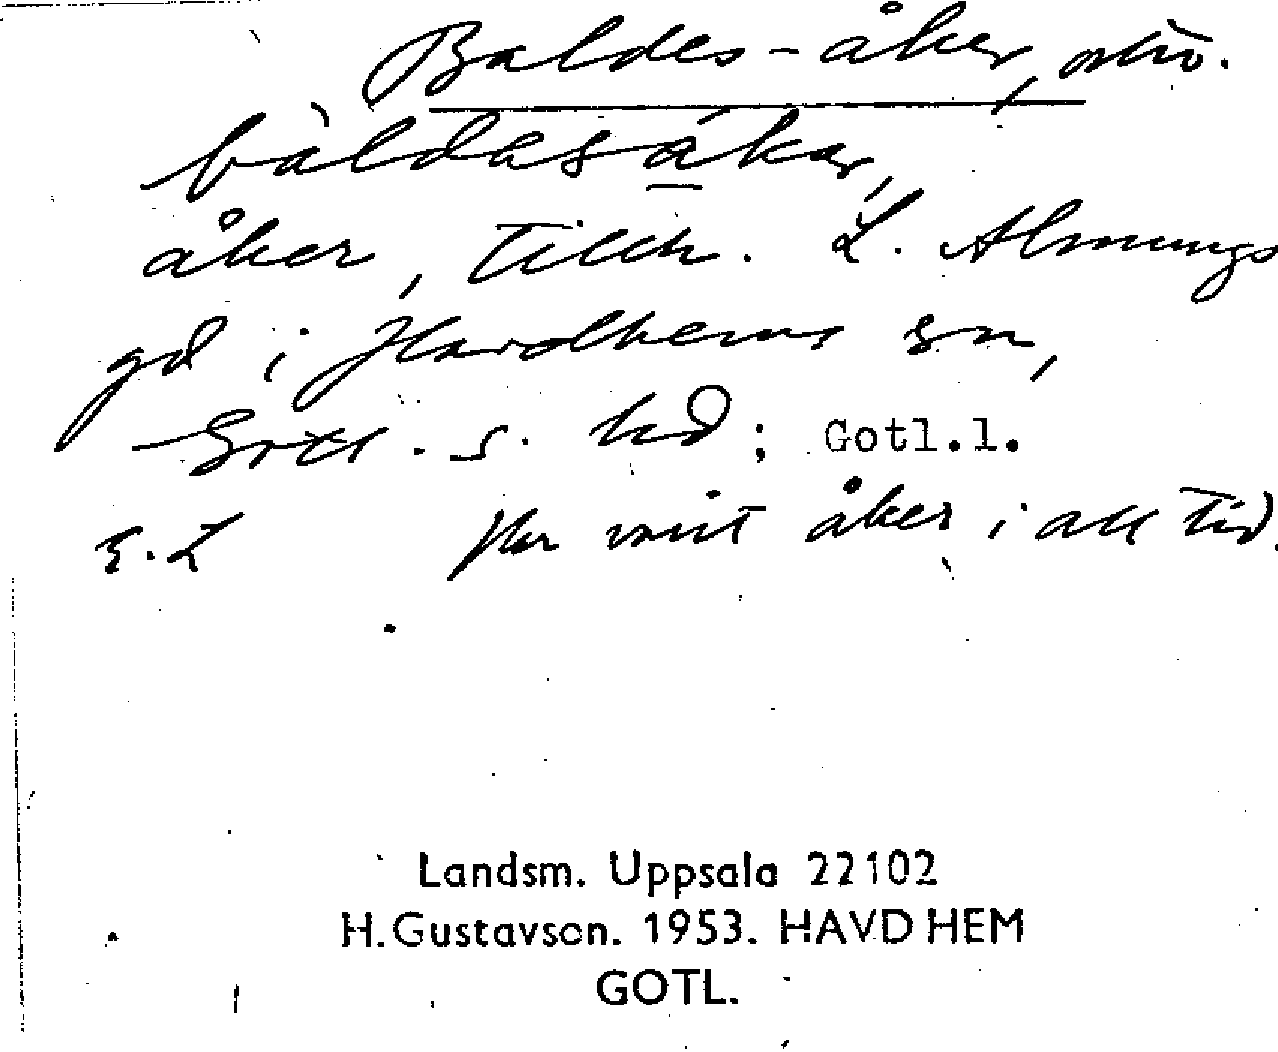 Baldes-åker, 
bàldasåkar,
åker, tillh. L. Almungs
gd i Havdhems sn,
Gotl. s. hd; Gotl.l.
Har varit åker i all tid.
Landsm. Uppsala 22102
H.Gustavson. 1953. HAVDHEM
GOTL.